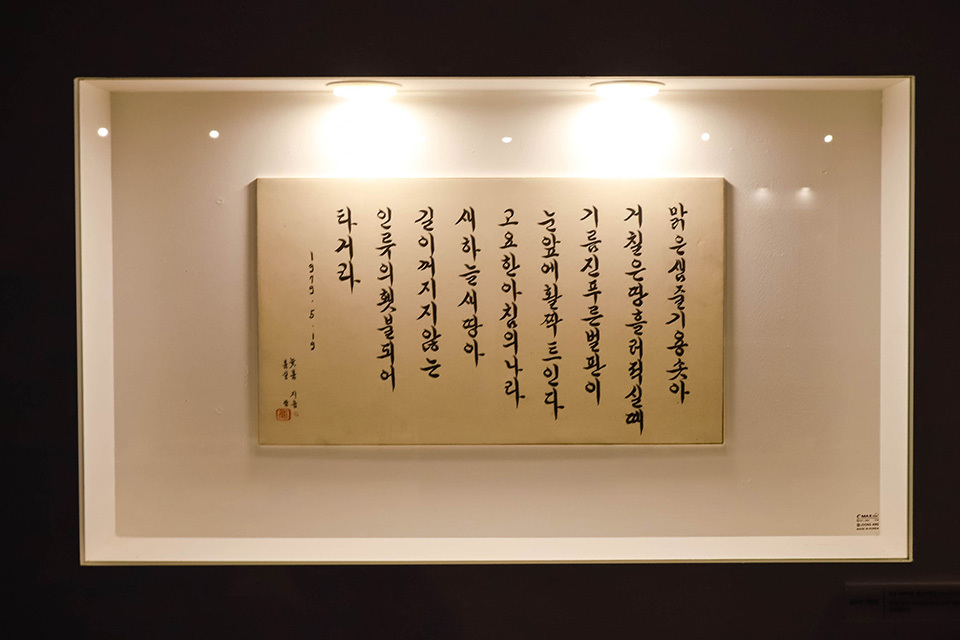 맑은샘줄기용솟아
거칠은땅흘러적실때
기름진푸른벌판이
눈앞에활짝트인다
고요한아침의나라
새하늘새땅아
길이꺼지지않는
인류의횃불되어
타거라
1979.5.19